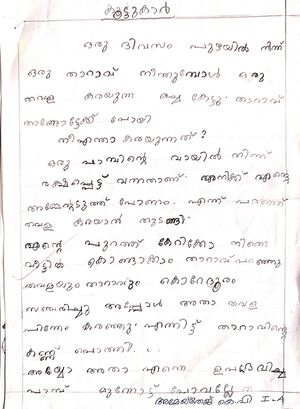 കൂട്ടുകാർ
ഒരു ദിവസം പുഴയിൽ നിന്ന്
ഒരു താറാവ് നിന്തുമ്പോൾ ഒരു
തവള കരയുന്ന കേട്ടു. താറാവ്
അങ്ങോട്ടേക്ക് പോയി
നീ എന്താ കരയുന്നത്?
ഒരു പാമ്പിന്റെ വായിൽ നിന്ന്
രക്ഷപ്പെട്ട് വന്നതാണ്. എനിക്ക് എന്റെ
അമ്മേന്റടുത്ത് പോണം. എന്ന് പറഞ്ഞ്
തവള കരയാൻ തുടങ്ങി
എന്റെ പുറത്ത് കേറിക്കോ നിന്നെ
വീട്ടിൽ കൊണ്ടാക്കാം താറാവ് പറഞ്ഞു
തവളയും താറാവും കൊറേദൂരം
സഞ്ചരിച്ചു അപ്പോൾ അതാ തവള
പിന്നേം കരഞ്ഞു. എന്നിട്ട് താറാവിന്റെ
കണ്ണ് പൊത്തി...
അയ്യോ അതാ എന്നെ ഉപദ്രവിച്ച
പാമ്പ് മുന്നോട്ട് പോവല്ലേ
കെ.വി I-A